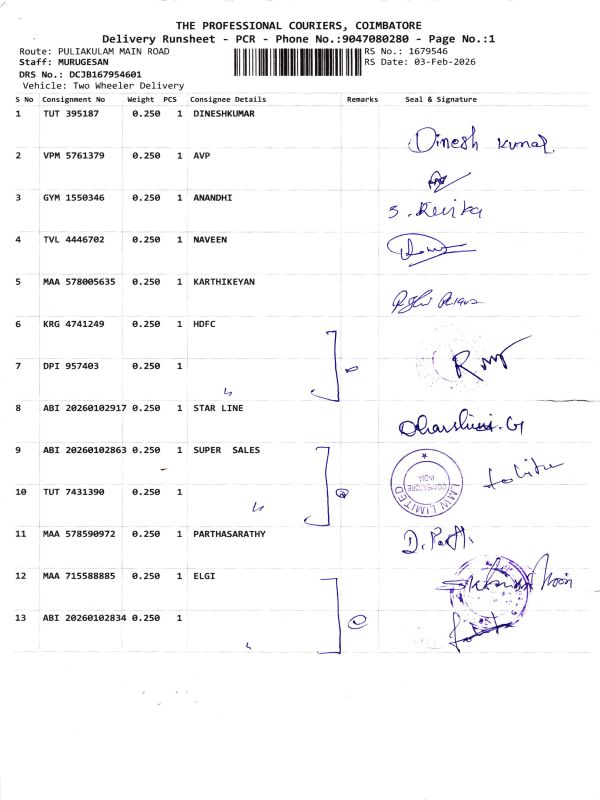 THE PROFESSIONAL COURIERS, COIMBATORE
Delivery Runsheet - PCR - Phone No.:9047080280 - Page No.:1
Route: PULIAKULAM MAIN ROAD RS No.: 1679546
Staff: MURUGESAN RS Date: 03-Feb-2026
DRS No.: DCJB167954601
Vehicle: Two Wheeler Delivery
S No Consignment No Weight PCS Consignee Details Remarks Seal & Signature
1 TUT 395187 0.250 1 DINESHKUMAR
Dinesh Kumar
2 VPM 5761379 0.250 1 AVP
3 GYM 1550346 0.250 1 ANANDHI
S. Revika
4 TVL 4446702 0.250 1 NAVEEN
5 MAA 578005635 0.250 1 KARTHIKEYAN
6 KRG 4741249 0.250 1 HDFC
7 DPI 957403 0.250 1
8 ABI 20260102917 0.250 1 STAR LINE
Dharshini. G
9 ABI 20260102863 0.250 1 SUPER SALES
LMW LIMITED
COIMBATORE
INDIA
10 TUT 7431390 0.250 1
11 MAA 578590972 0.250 1 PARTHASARATHY
D. Parth.
12 MAA 715588885 0.250 1 ELGI
13 ABI 20260102834 0.250 1